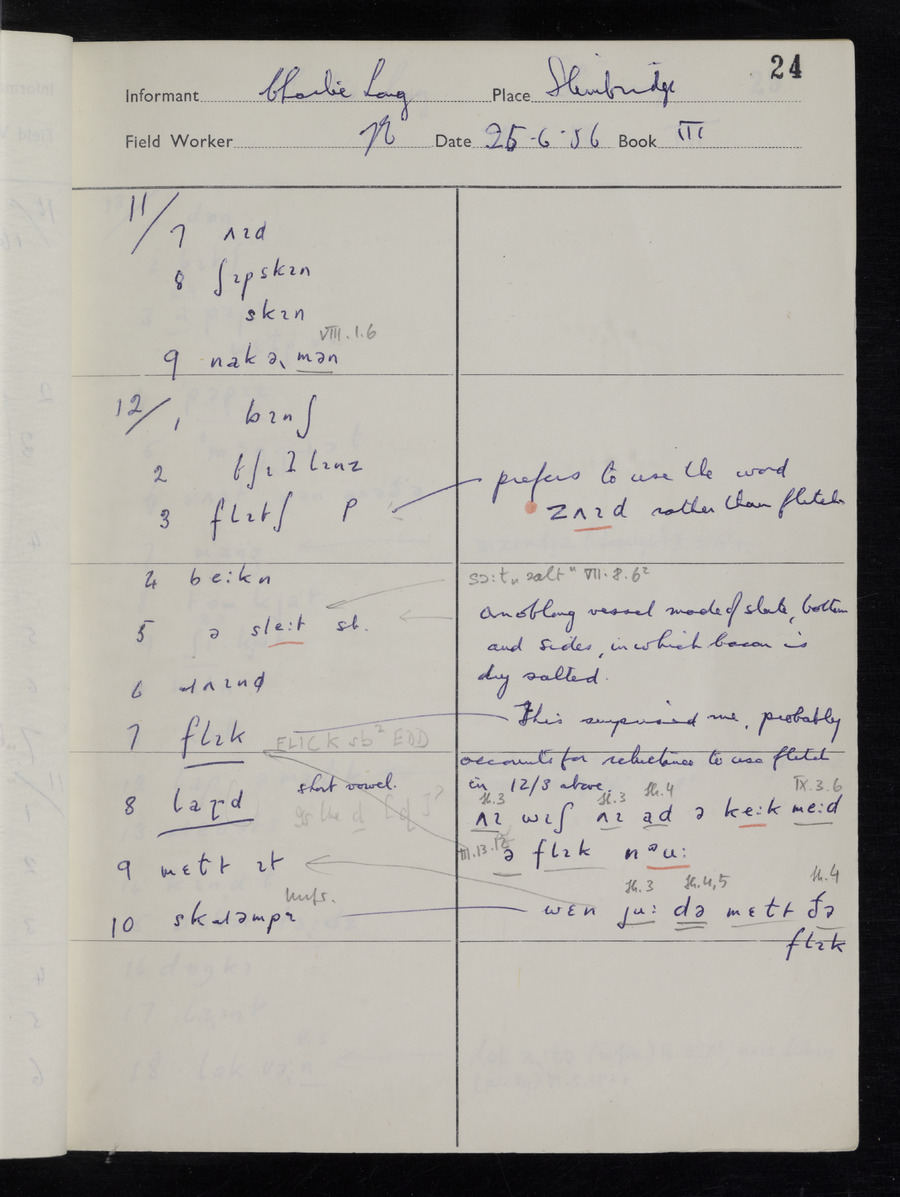 24
Informant Charlie Long Place Slimbridge
Field Worker Date 25-6-56 Book III
11/7 ʌɪd
8 ʃɪpskɪn
skɪn
VIII.1.6
9 nakəɹ mən
12/1 bɪnʃ
2
3 flɪtʃ p
prefers to use the word
zʌɪd rather than flitch
4 beːkn
sɔːt "salt" VII.8.6²
5 ə sleːt sb.
an oblong vessel made of slate, bottom
and sides, in which bacon is
dry salted.
6
7 flɪk FLICK sb² EDD
This surprised me, probably
accounts for reluctance to use flitch
in 12/3 above.
8 short vowel.
th.3 th.3 th.4 IX.3.6
ʌɪ wɪʃ ʌɪ ad ə keːk meːd
9 mɛtt ɪt
ə flɪk nᵊuː
th.3 th.4,5 th.4
10
wɛn juː də mɛtt ðə
flɪk